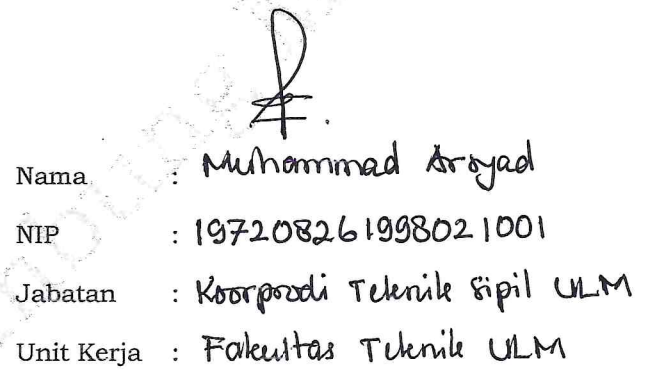 Nama : Muhammad Arsyad
NIP : 197208261998021001
Jabatan : Koorprodi Teknik Sipil ULM
Unit Kerja : Fakultas Teknik ULM